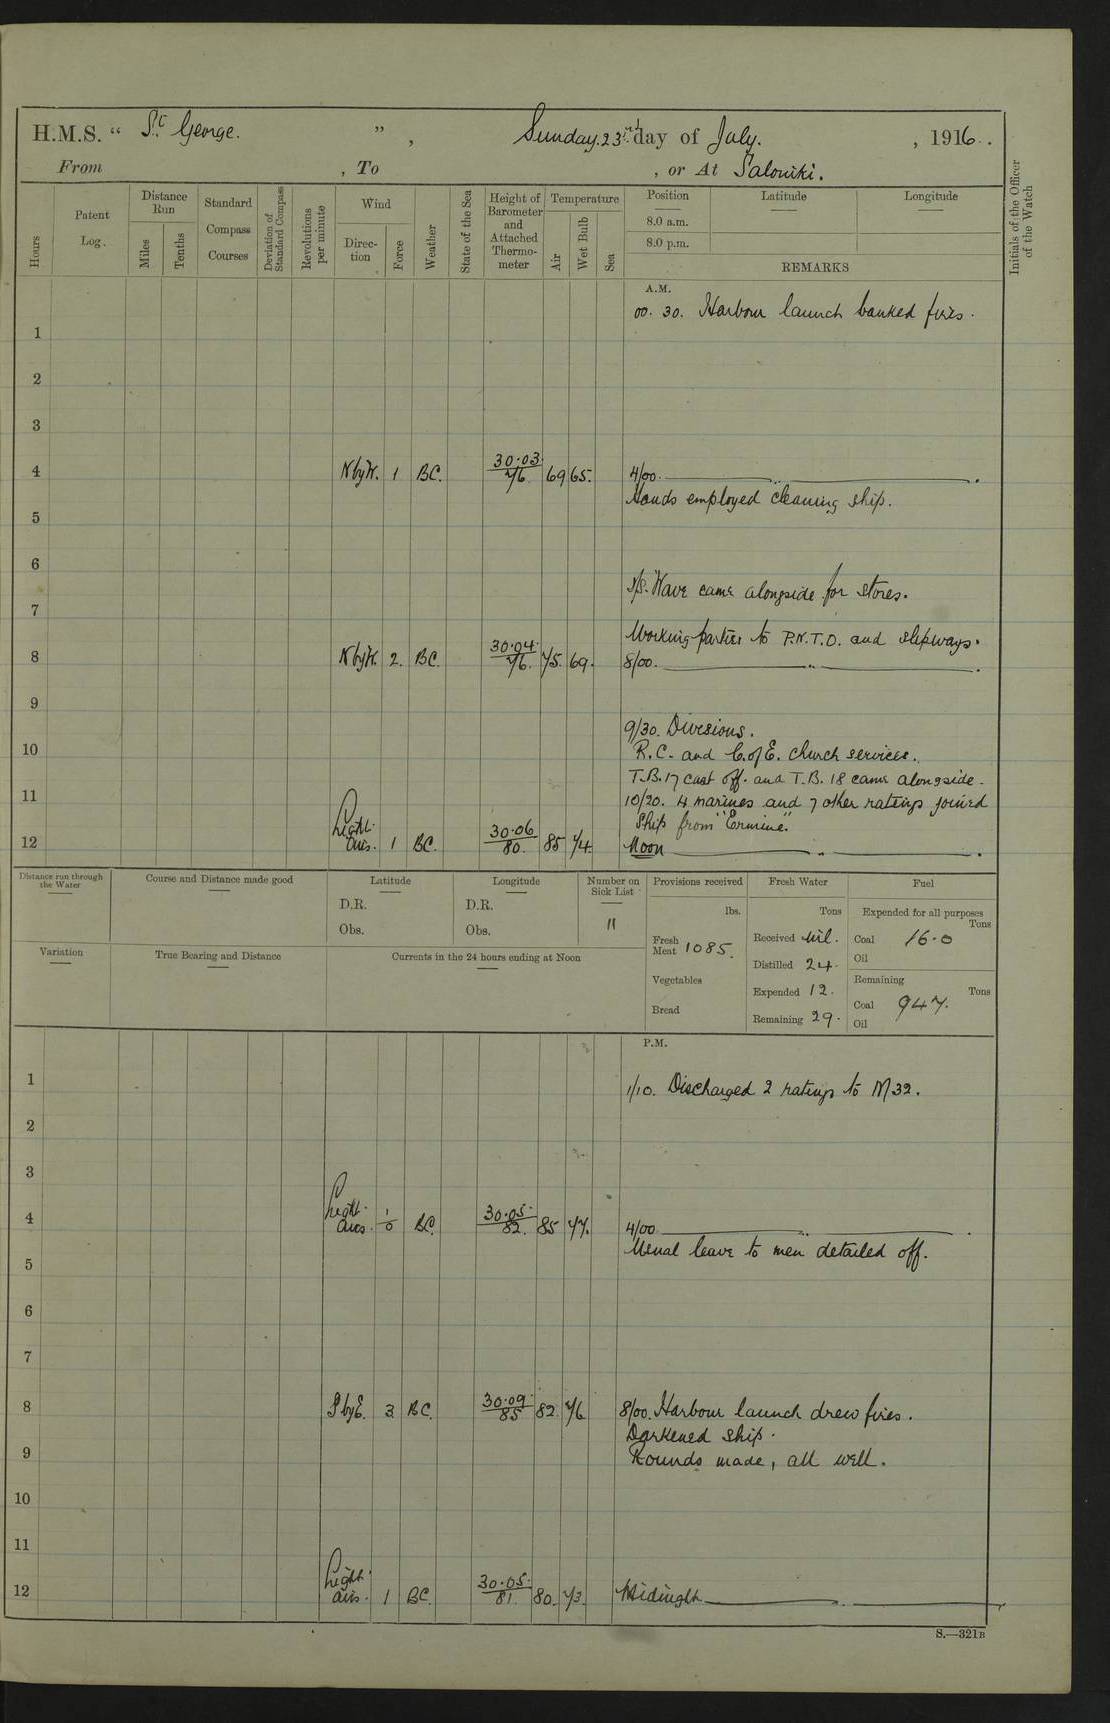 H.M.S. “ St. George. ” , Sunday. 23rd. day of July. , 1916.
From , To , or At Saloniki.
Hours
Patent Log.
Distance Run
Miles
Tenths
Standard Compass Courses
Deviation of Standard Compass
Revolutions per minute
Wind
Direc- tion
Force
Weather
State of the Sea
Height of Barometer and Attached Thermo- meter
Temperature
Air
Wet Bulb
Sea
Position Latitude Longitude
8.0 a.m.
8.0 p.m.
REMARKS
Initials of the Officer of the Watch
A.M.
00. 30. Harbour launch banked fires.
1
2
3
4 N by W. 1 BC. 30.03. 76. 69 65. 4/00. ..
Hands employed cleaning ship.
5
6
S/S. Wave came alongside for stores.
7
Working parties to P.N.T.O. and slipways.
8 N by W. 2. BC. 30.04. 76. 75. 69. 8/00. ..
9
9/30. Divisions.
10 R.C. and C. of E. church services.
T.B. 17 cast off. and T.B. 18 came alongside.
11 10/20. 4 marines and 7 other ratings joined
ship from "Ermine."
12 Light airs. 1 BC. 30.06 80. 85 74. Noon ..
Distance run through the Water
Course and Distance made good
Latitude
D.R.
Obs.
Longitude
D.R.
Obs.
Number on Sick List
11
Provisions received
lbs.
Fresh Meat 1085.
Vegetables
Bread
Fresh Water
Tons
Received Nil.
Distilled 24.
Expended 12.
Remaining 29.
Fuel
Expended for all purposes
Tons
Coal 16.0
Oil
Remaining
Tons
Coal 947.
Oil
Variation
True Bearing and Distance
Currents in the 24 hours ending at Noon
P.M.
1 1/10. Discharged 2 ratings to M32.
2
3
4 Light airs. 1/0 BC. 30.05. 82. 85 77. 4/00 ..
Usual leave to men detailed off.
5
6
7
8 S by E. 3. BC. 30.09. 85 82. 76 8/00. Harbour launch drew fires.
Darkened ship.
9 Rounds made, all well.
10
11
12 Light airs. 1 BC. 30.05. 81. 80. 73. Midnight ..
S.—321B